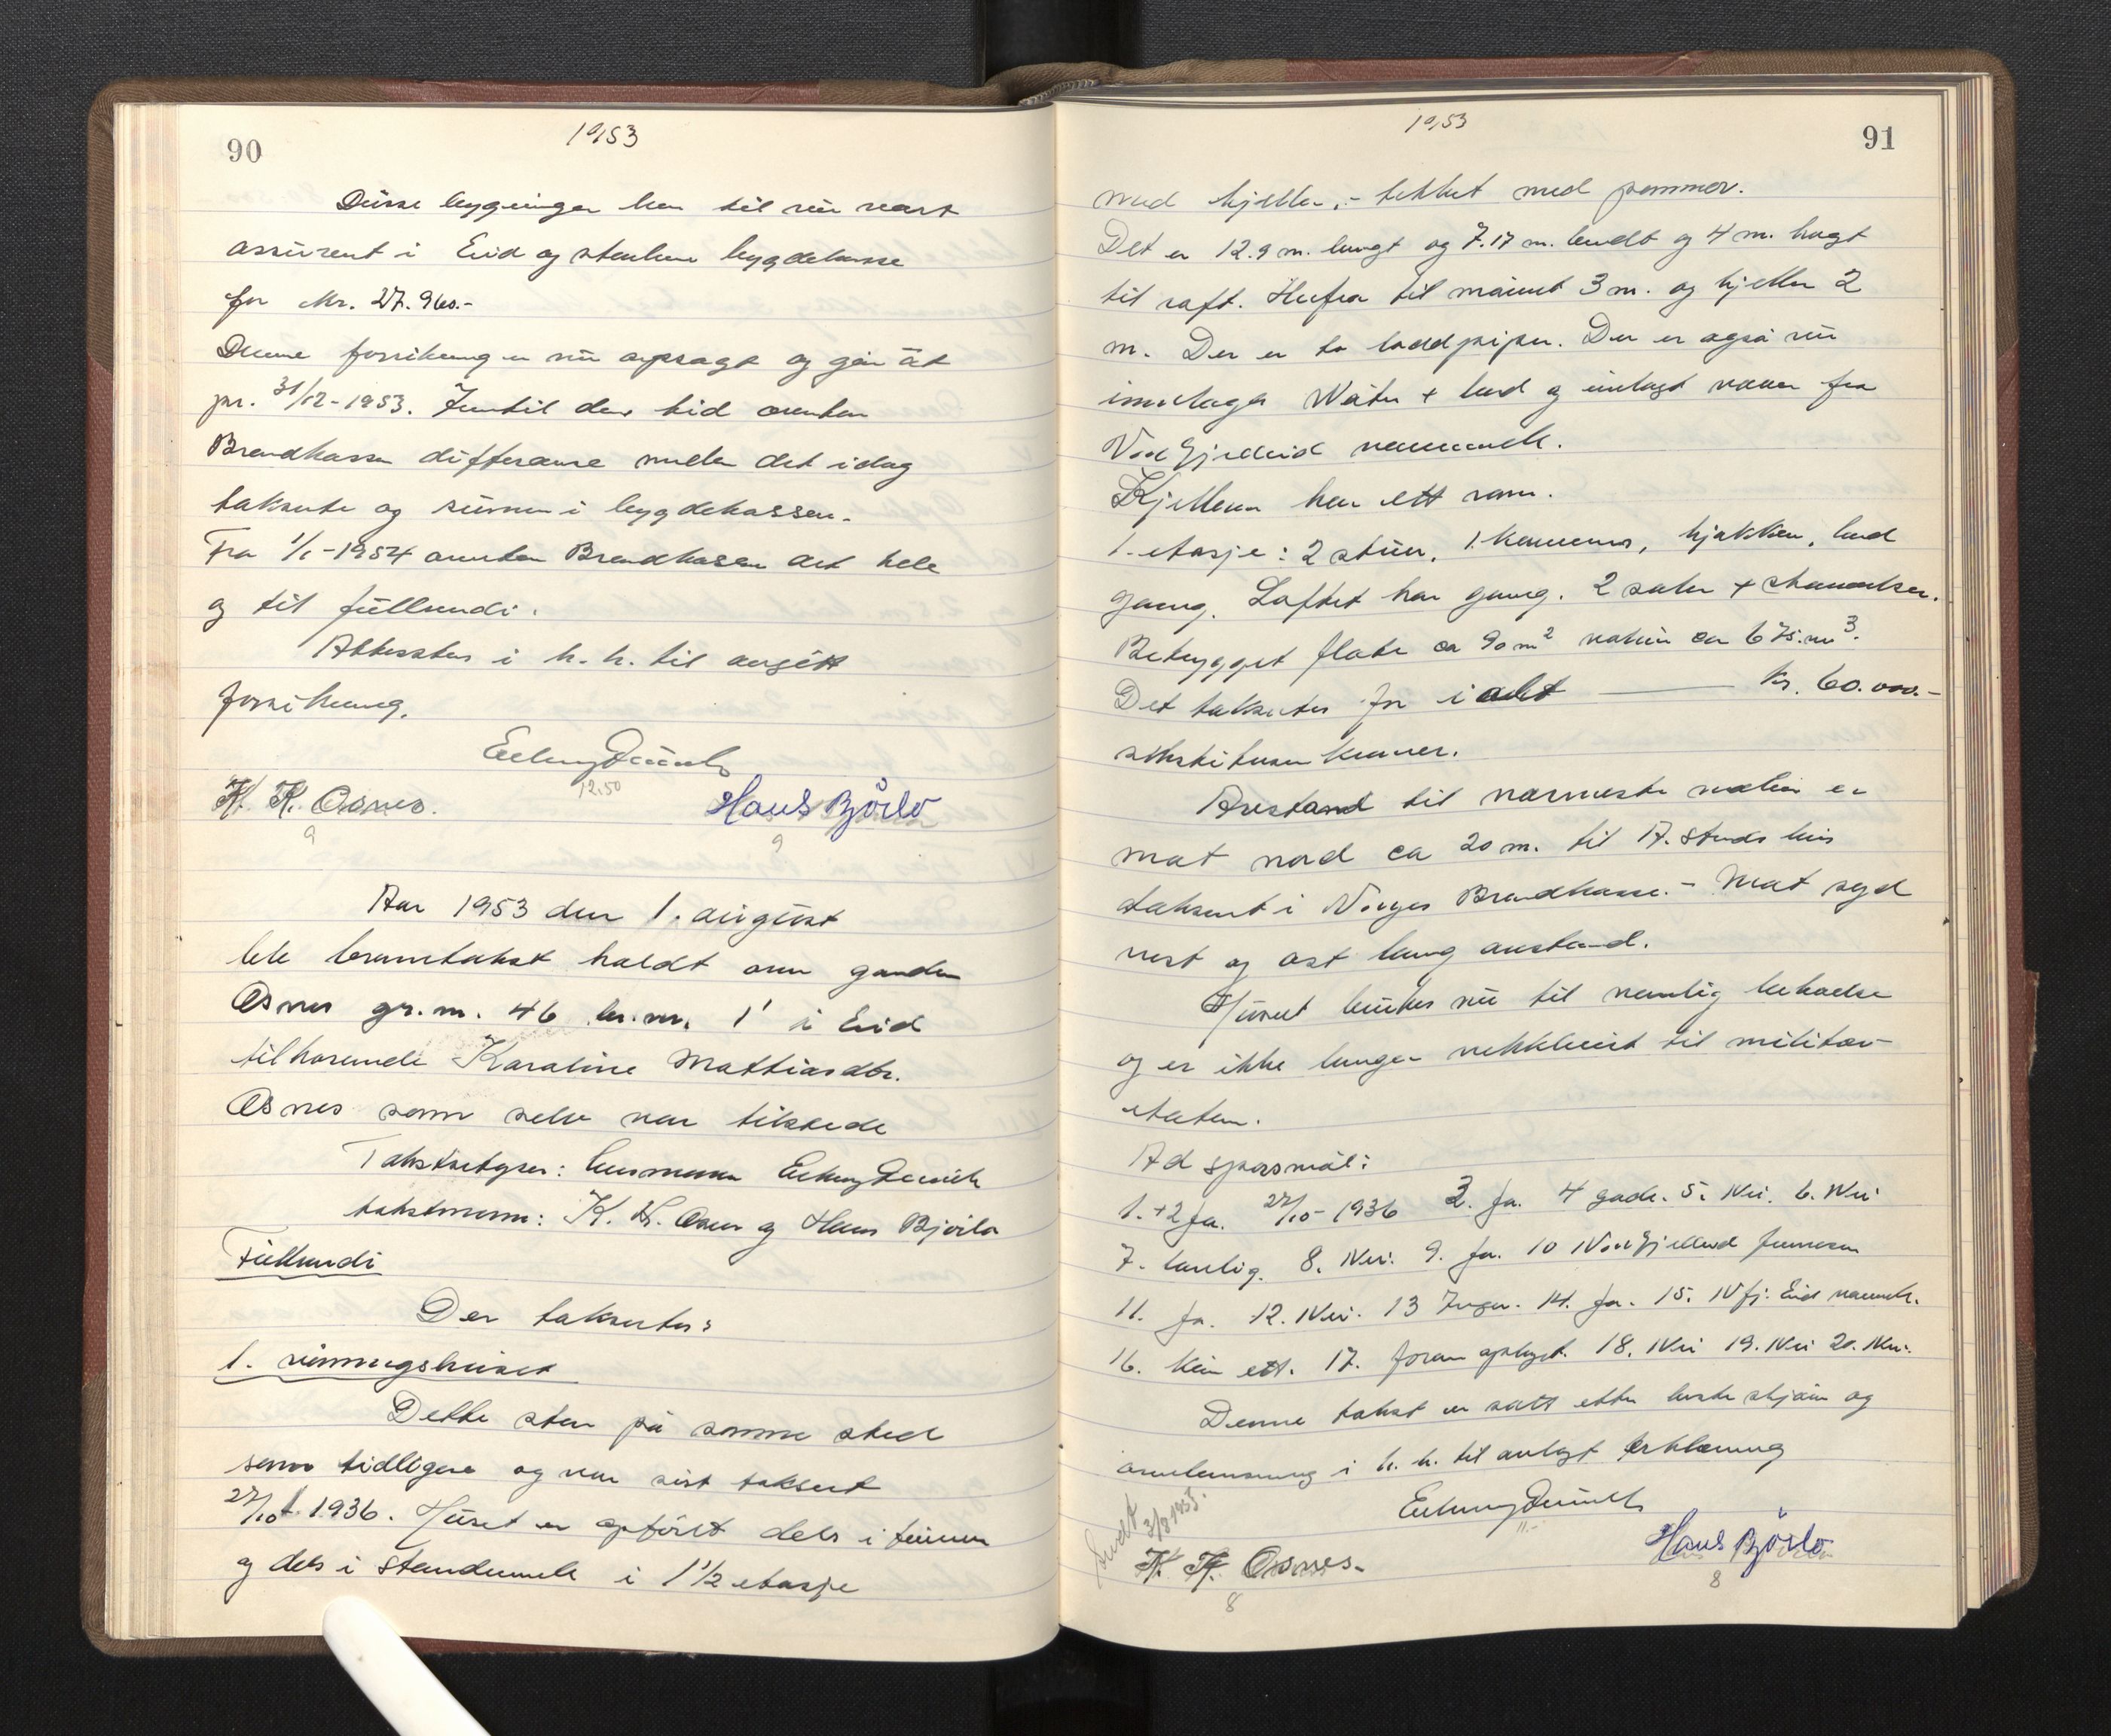 90
1953
Disse bygninger har til nu vært
assurert i Eid og bygdekasse
for Kr. 27.960.-
Denne forsikring er nu opsagt og går ut
pr. 31/12-1953. Inntil den tid overtar
Brandkassen differanse mellem det idag
takserte og summen i bygdekassen.
Fra 1/1-1954 overtar Brandkassen det hele
og til fullverdi.
Attesteres i h. h. til avgitt
forsikring.
K. K. Osnes.
12.50
Hans Bjørlo
9
9
Aar 1953 den 1. august
ble branntakst holdt over garden
Osnes gr.nr. 46 br.nr. 1 i Eid
tilhørende Karoline Mattiasdtr.
Osnes som selv var tilstede
Takstbestyrer: lensmann
takstmenn: K. K. Osnes og Hans Bjørlo
Fullverdi
Der takseres:
1. våningshuset
Dette står på samme sted
som tidligere og var sist taksert
27/10 1936. Huset er opført dels i tømmer
og dels i stenderverk i 1 1/2 etasje
1953
91
med kjeller, - tekket med panner.
Det er 12.9 m. langt og 7.17 m. bredt og 4 m. høgt
til raft. Herfra til mønet 3 m. og kjeller 2
m. Der er to loddpiper. Der er også nu
innlaga Water + bad og innlagt vann fra
Nordfjordeid vannverk.
Kjelleren har ett rom.
1. etasje: 2 stuer, 1 kammers, kjøkken, bad
gang. Loftet har gang. 2 saler +
Bebygget flate ca 90 m² volum ca 675 m³.
Det takseres for i alt — Kr. 60.000.-
sekstitusen kroner.
Avstand til nærmeste nabo er
mot nord ca 20 m. til A. Stads hus
taksert i Norges Brandkasse. - Mot syd
vest og øst lang avstand.
Huset brukes nu til vanlig beboelse
og er ikke lenger rekvirert til militær-
etaten.
Ad spørsmål:
1.+2 Ja. 27/10-1936 3. Ja. 4 gode. 5. Nei. 6. Nei
7. vanlig. 8. Nei. 9. Ja. 10 Nordfjordeid
11. Ja. 12. Nei. 13 Ingen. 14. Ja. 15. Nfj. Eid vannverk.
16. Kun ett. 17. foran oplyst. 18. Nei 19. Nei 20. Nei.
Denne takst er satt etter beste skjønn og
overbevisning i h. h. til avlagt erklæring
11.-
Sendt 3/8 1953.
K. K. Osnes.
Hans Bjørlo
8
8